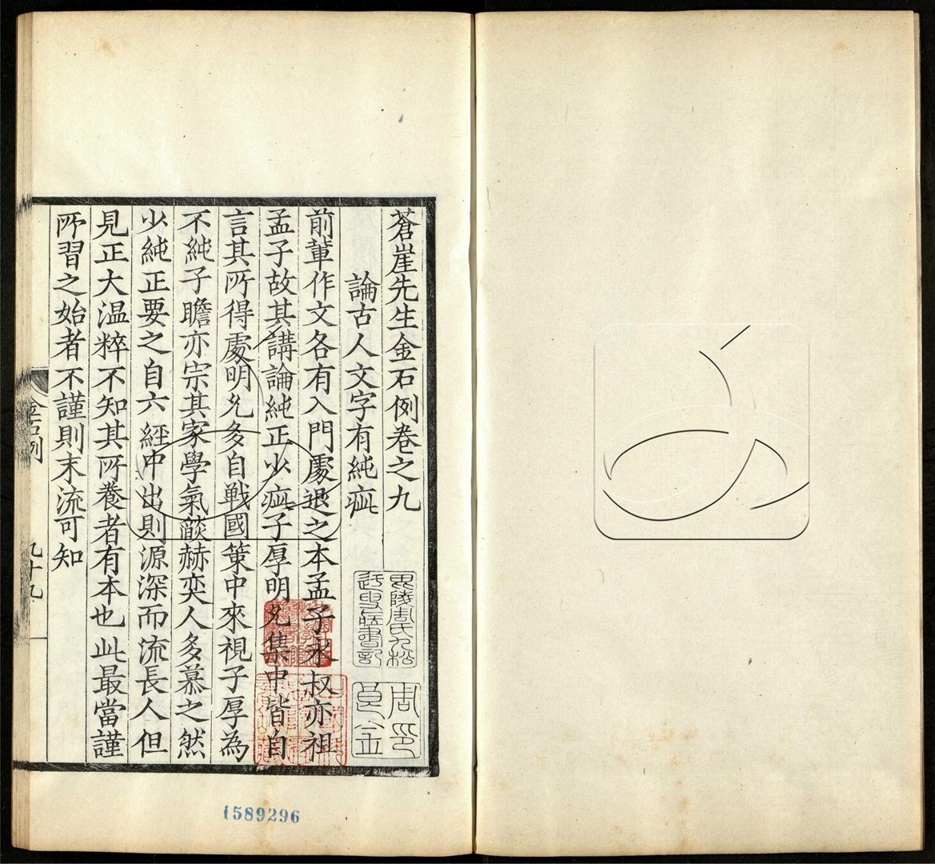 蒼崖先生金石例卷之九
論古人文字有純疵
前輩作文各有入門處退之本孟子永叔亦祖
孟子故其講論純正少疵子厚明允集中皆自
言其所得處明允多自戰國策中來視子厚為
不純子瞻亦宗其家學氣燄赫奕人多慕之然
少純正要之自六經中出則源深而流長人但
見正大温粹不知其所養者有本也此最當謹
所習之始者不謹則末流可知
金石例
九十九
毘陵周氏九松
迂叟藏書記
周印
良金
1589296